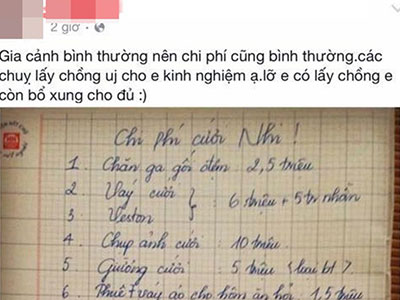 2 giờ
Gia cảnh bình thường nên chi phí cũng bình thường.các
chuỵ lấy chồng uj cho e kinh nghiệm ạ.lỡ e có lấy chồng e
còn bổ xung cho đủ :)
Chi phí cưới Nhi !
1. Chăn ga gối đệm 2,5 triệu
2 Váy cưới } : 6 triệu + 5tr nhẫn
3. Veston
4 Chụp ảnh cưới : 10 triệu.
5 Giường cưới : 5 triệu
6 Thuê váy áo cho hôm ăn hỏi 1,5 triệu